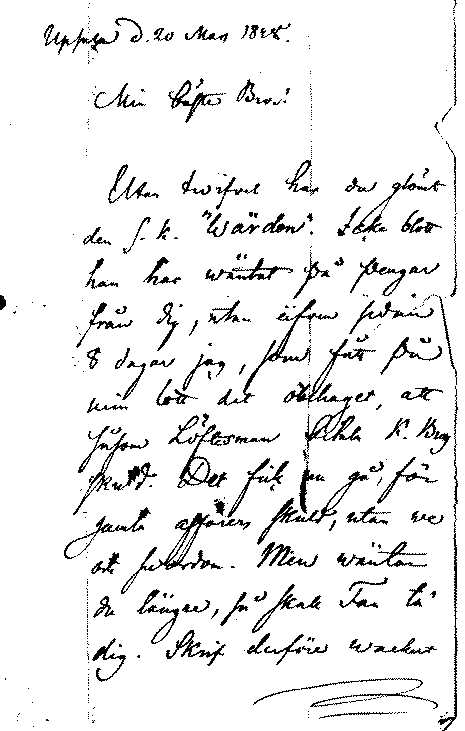 Upsala d. 20 Mars 1848.
Min bäste Bror!
Utan twifvel har du glömt
den s. k. "Wärden". Icke blott
han har wäntat på pengar
från dig, utan äfven sedan
8 dagar jag, som fått på
min lott det obehaget, att
såsom Löftesman betala K. Bros
skuld. Det fick än gå, för
gamla affärers skuld, utan
att swordom. Men wäntar
du längre, så skall Fan ta
dig. Skrif derföre wackert